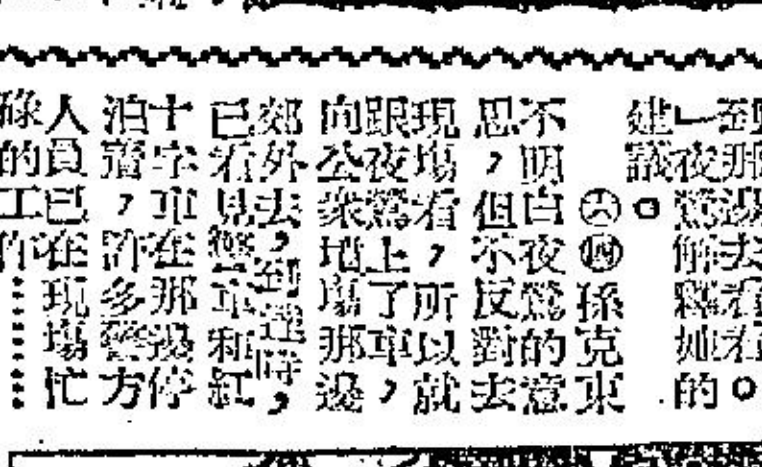 到那邊去看看。
」夜鶯解釋她的
建議。
㊅㊃孫克東
不明白夜鶯的意
思，但不反對去
現塲看，所以就
跟夜鶯上了車，
向公衆地塲那邊
郊外去，到達時，
已看見車和紅
十字車在那邊停
泊齊，許多警方
人員已在現塲忙
碌的工作……